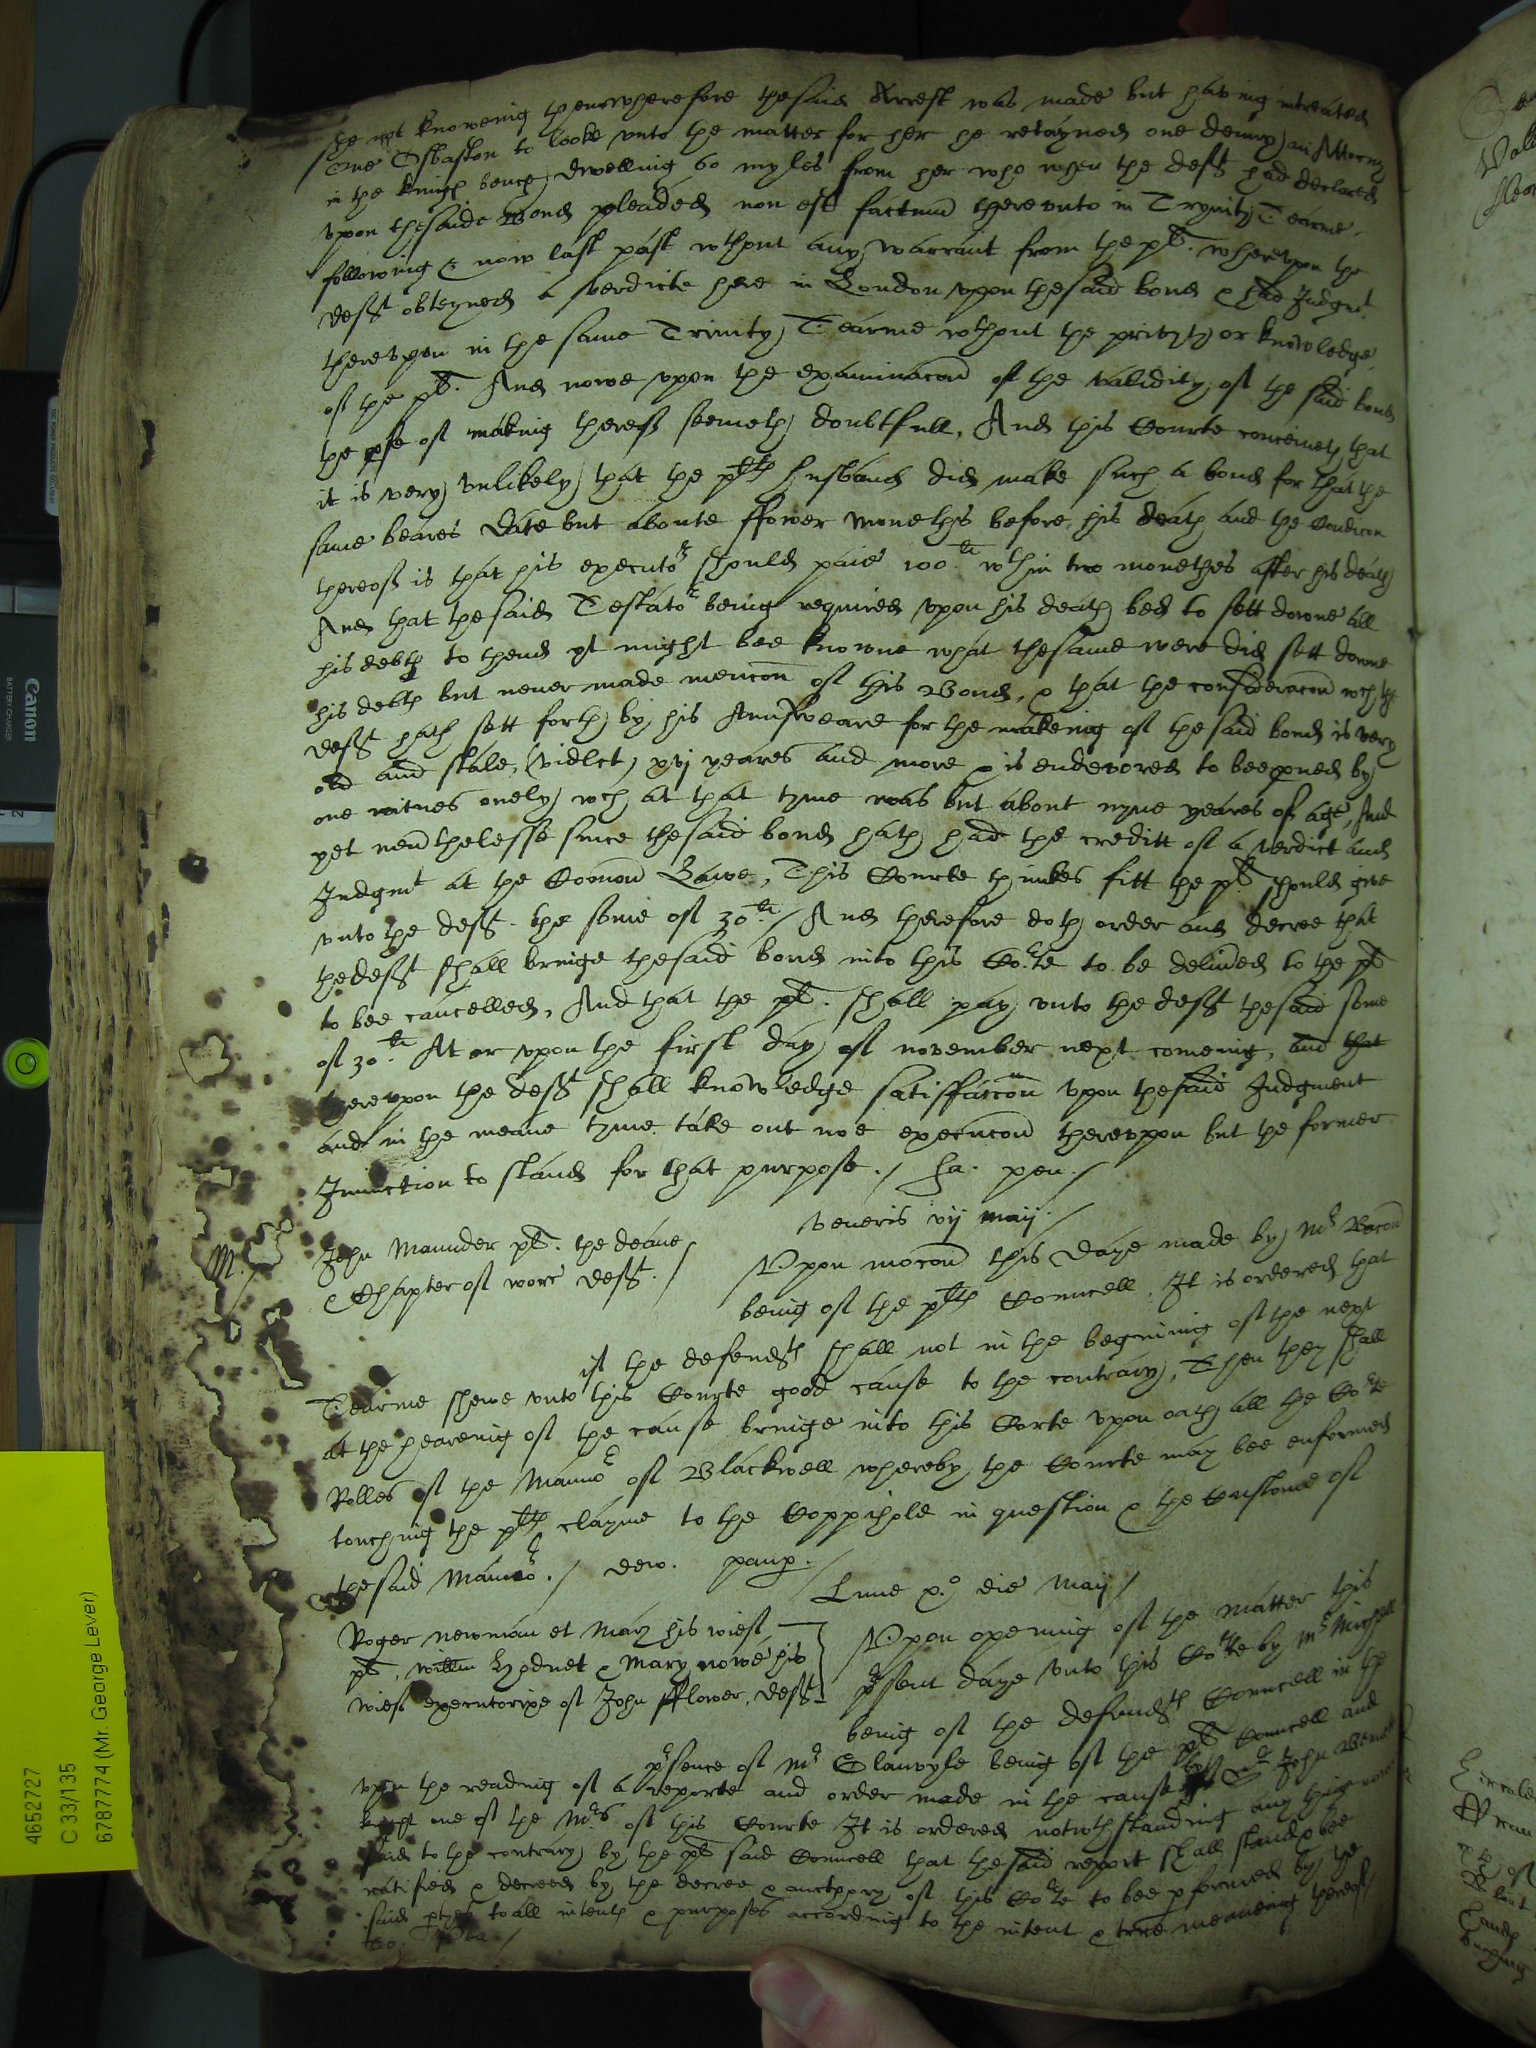 she not knoweing thenwherefore thesaid Arrest was made but having intreated
one Osbaston to looke vnto the matter for her he retayned one an Attorny
in the kings bench dwelling 60 myles from her who when the deft had declared
vpon thesaide Bond pleaded non est factum therevnto in Trynity Tearme
following & now last past wthout any warrant from the plt. wherevpon the
deft obteyned a verdicte here in London vpon thesaid bond & had Judgmt
therevpon in the same Trinity Tearme wthout the privity or knowledge
of the plt. And nowe vpon the examinacon of the validity of the said bond
the making thereof seemeth doubtfull, And this Courte conceiveth that
it is very vnlikely that the plts husband did make such a bond for that the
same beares date but aboute ffower monethes before his death and the Condicon
thereof is that his executor should paie 100li. wthin two monethes after his death
And that thesaid Testator being required vpon his death bed to sett downe all
his debts to thend yt might bee knowne what thesame were did sett downe
his debts but never made mencon of this Bond, & that the consideracon wch the
deft hath sett forth by his Aunsweare for the makeing of the said bond is very
old and stale, (vidlct) xvj yeares and more & is endevored to bee pved by
one witnes onely wch at that tyme was but about nyne yeares of age, And
yet nevthelesse since thesaid bond hath had the creditt of a verdict and
Judgmt at the Comon Lawe, This Courte thinkes fitt the plt. should give
vnto the deft. the some of 30li / And therefore doth order and decree that
thedeft shall bringe thesaid bond into this Corte to be delived to the plt
to bee cancelled, And that the plt. shall pay vnto the deft thesaid some
of 30li. At or vpon the first day of november next comeing, and that
herevpon the deft shall knowledge satisfaccon vpon thesaid Judgment
and in the meane tyme take out noe execucon therevppon but the former
Iniunction to stand for that purpose. / ha. pen. /
Veneris vij maij. /
M. /
John Maunder plt. the deane
& Chapter of worc defts. /
Vpon mocon this daye made by Mr Bacon
being of the plts Councell. It is ordered that
if the defendts shall not in the begining of the next
Tearme shewe vnto this Courte good cause to the contrary, Then they shall
at the heareing of the cause bringe into this Corte vpon oath all the Corte
Rolles of the Mannor of Blackwell whereby the Courte may bee enformed
touching the plts clayme to the Coppihole in question & the Custome of
thesaid Mannor. / dew. paup. /
Lune x.o die Maij /
Roger Newman et Mary his wief
plts, willm Hodnet & Mary nowe his
wief executorixe of John fflower, defts
Vpon opening of the matter this
psent daye vnto this Corte by Mr
being of the defendts Councell in the
psence of Mr Glanvyle being of the plts Councell and
vpon the reading of a reporte and order made in the cause by Sr John
knight one of the Mrs of this Courte It is ordered notwthstanding any thing now
said to the contrary by the plts said Councell that thesaid report shall stand & bee
ratified & decreed by the decree & aucthory of this Corte to bee pformed by the
said ptyes to all intents & purposes according to the intent & true meaneing thereof /
Canon
BATTERY CHARGER
4652727
C 33/135
6787774 (Mr. George Lever)